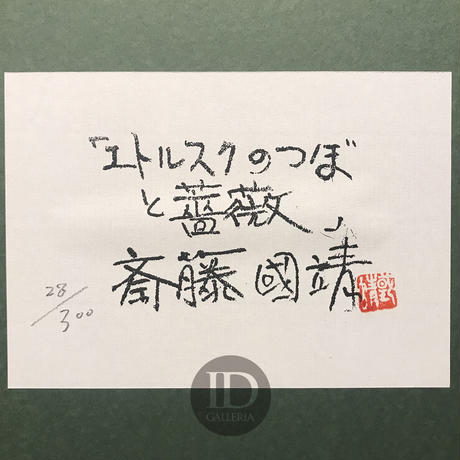 「エトルスクのつぼ
と薔薇」
斎藤國靖
28/300
ID
GALLERIA